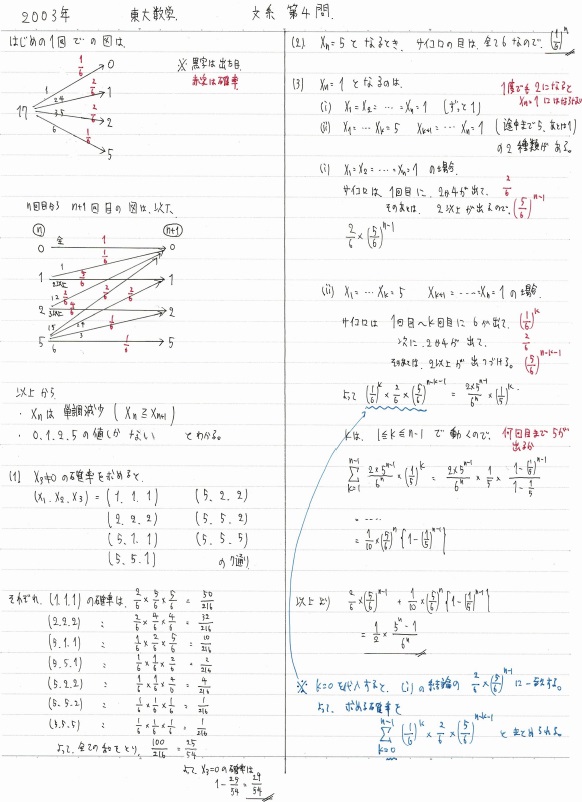 2003年 東大数学. 文系 第4問.
はじめの1回での図は.
※ 黒字は出る目.
赤字は確率.
17
1 1/6 0
2,4 2/6 1
3,5 2/6 2
6 1/6 5
n回目から n+1回目の図は.以下.
n n+1
0 全 1 0
1 1 1/6 2以上 5/6 1
2 1,2 2/6 3以上 4/6 2
5 1,5 2/6 2,4 2/6 3 1/6 6 1/6 5
以上から
・Xnは 単調減少 (Xn ≧ Xn+1)
・0.1.2.5の値しかない とわかる。
(1) X3≠0の確率を求めると.
(X1, X2, X3) = (1, 1, 1) (5, 2, 2)
(2, 2, 2) (5, 5, 2)
(5, 1, 1) (5, 5, 5)
(5, 5, 1) の7通り
それぞれ (1,1,1)の確率は. 2/6 × 5/6 × 5/6 = 50/216
(2,2,2) 〃 2/6 × 4/6 × 4/6 = 32/216
(5,1,1) 〃 1/6 × 2/6 × 5/6 = 10/216
(5,5,1) 〃 1/6 × 1/6 × 2/6 = 2/216
(5,2,2) 〃 1/6 × 1/6 × 4/6 = 4/216
(5,5,2) 〃 1/6 × 1/6 × 1/6 = 1/216
(5,5,5) 〃 1/6 × 1/6 × 1/6 = 1/216
よって.全ての和をとり. 100/216 = 25/54
よって X3=0の確率は
1 - 25/54 = 29/54
(2). Xn=5 となるとき. サイコロの目は.全て6なので. (1/6)^n
(3) Xn=1 となるのは.
1度でも2になると
Xn=1にはならない
(i) X1=X2=…=Xn=1 (ずっと1)
(ii) X1=…Xk=5 Xk+1=…Xn=1 (途中まで5.あとは1)
の2種類がある。
(i) X1=X2=…=Xn=1 の場合.
サイコロは 1回目に.2か4が出て. 2/6
そのあとは. 2以上が出るので. (5/6)^n-1
2/6 × (5/6)^n-1
(ii) X1=…Xk=5 Xk+1=……Xn=1 の場合.
サイコロは 1回目〜k回目に 6が出て. (1/6)^k
次に. 2か4が出て. 2/6
そのあとは. 2以上が出つづける。 (5/6)^n-k-1
よって (1/6)^k × 2/6 × (5/6)^n-k-1 = 2×5^n-1/6^n × (1/5)^k.
kは. 1≦k≦n-1 で動くので. 何回目まで5が
出るか
n-1 Σ k=1 2×5^n-1/6^n × (1/5)^k = 2×5^n-1/6^n × 1/5 × 1-(1/5)^n-1/1-1/5
= ……
= 1/10 × (5/6)^n {1-(1/5)^n-1}
以上より 2/6 × (5/6)^n-1 + 1/10 × (5/6)^n {1-(1/5)^n-1}
= 1/2 × 5^n-1/6^n
※ k=0を代入すると. (i)の結論の 2/6 × (5/6)^n-1 に一致する。
よって. 求める確率を
n-1 Σ k=0 (1/6)^k × 2/6 × (5/6)^n-k-1 とまとめられる。